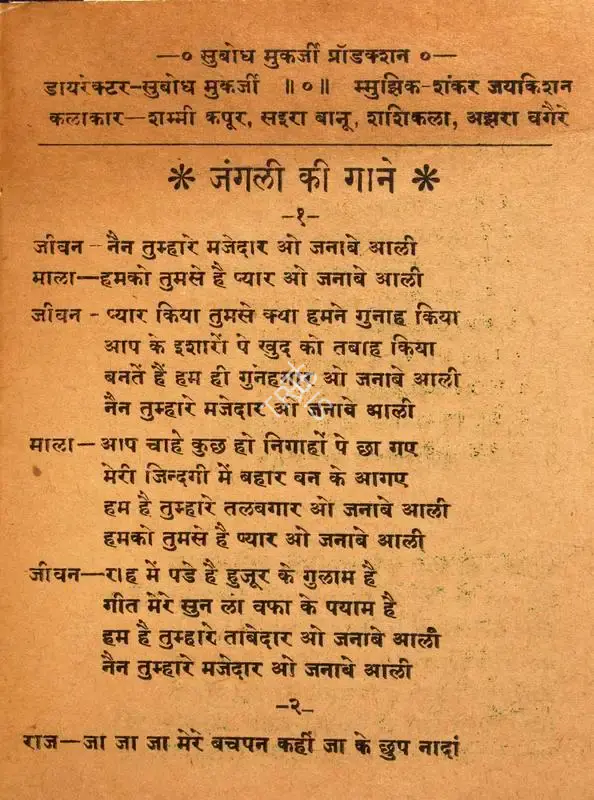 —० सुबोध मुकर्जी प्रॉडक्शन ०—
डायरेक्टर-सुबोध मुकर्जी ॥०॥ म्मुझिक-शंकर जयकिशन
कलाकार—शम्मी कपूर, सइरा बानू, शशिकला, अझरा वगैरे
* जंगली की गाने *
-१-
जीवन - नैन तुम्हारे मजेदार ओ जनाबे आली
माला—हमको तुमसे है प्यार ओ जनाबे आली
जीवन - प्यार किया तुमसे क्या हमने गुनाह किया
आप के इशारों पे खुद को तबाह किया
बनतें हैं हम ही गुनेहगार ओ जनाबे आली
नैन तुम्हारे मजेदार ओ जनाबे आली
माला—आप चाहे कुछ हो निगाहों पे छा गए
मेरी जिन्दगी में बहार बन के आगए
हम है तुम्हारे तलबगार ओ जनाबे आली
हमको तुमसे है प्यार ओ जनाबे आली
जीवन—राह में पडे है हुजूर के गुलाम है
गीत मेरे सुन ला वफा के पयाम है
हम है तुम्हारे ताबेदार ओ जनाबे आली
नैन तुम्हारे मजेदार ओ जनाबे आली
-२-
राज—जा जा जा मेरे बचपन कहीं जा के छुप नादां